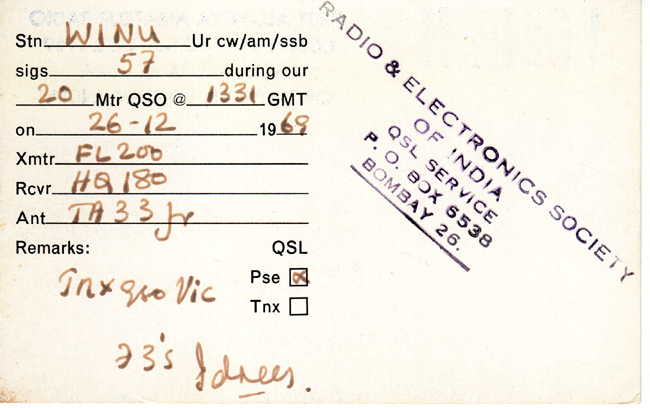 Stn W1NU Ur cw/am/ssb
sigs 57 during our
20 Mtr QSO @ 1331 GMT
on 26-12 1969
Xmtr FL200
Rcvr HQ180
Ant TA33 Jr
Remarks: QSL
Pse
Tnx
Tnx qso Vic
73's Idrees.
RADIO & ELECTRONICS SOCIETY
OF INDIA
QSL SERVICE
P. O. BOX 6538
BOMBAY 26.